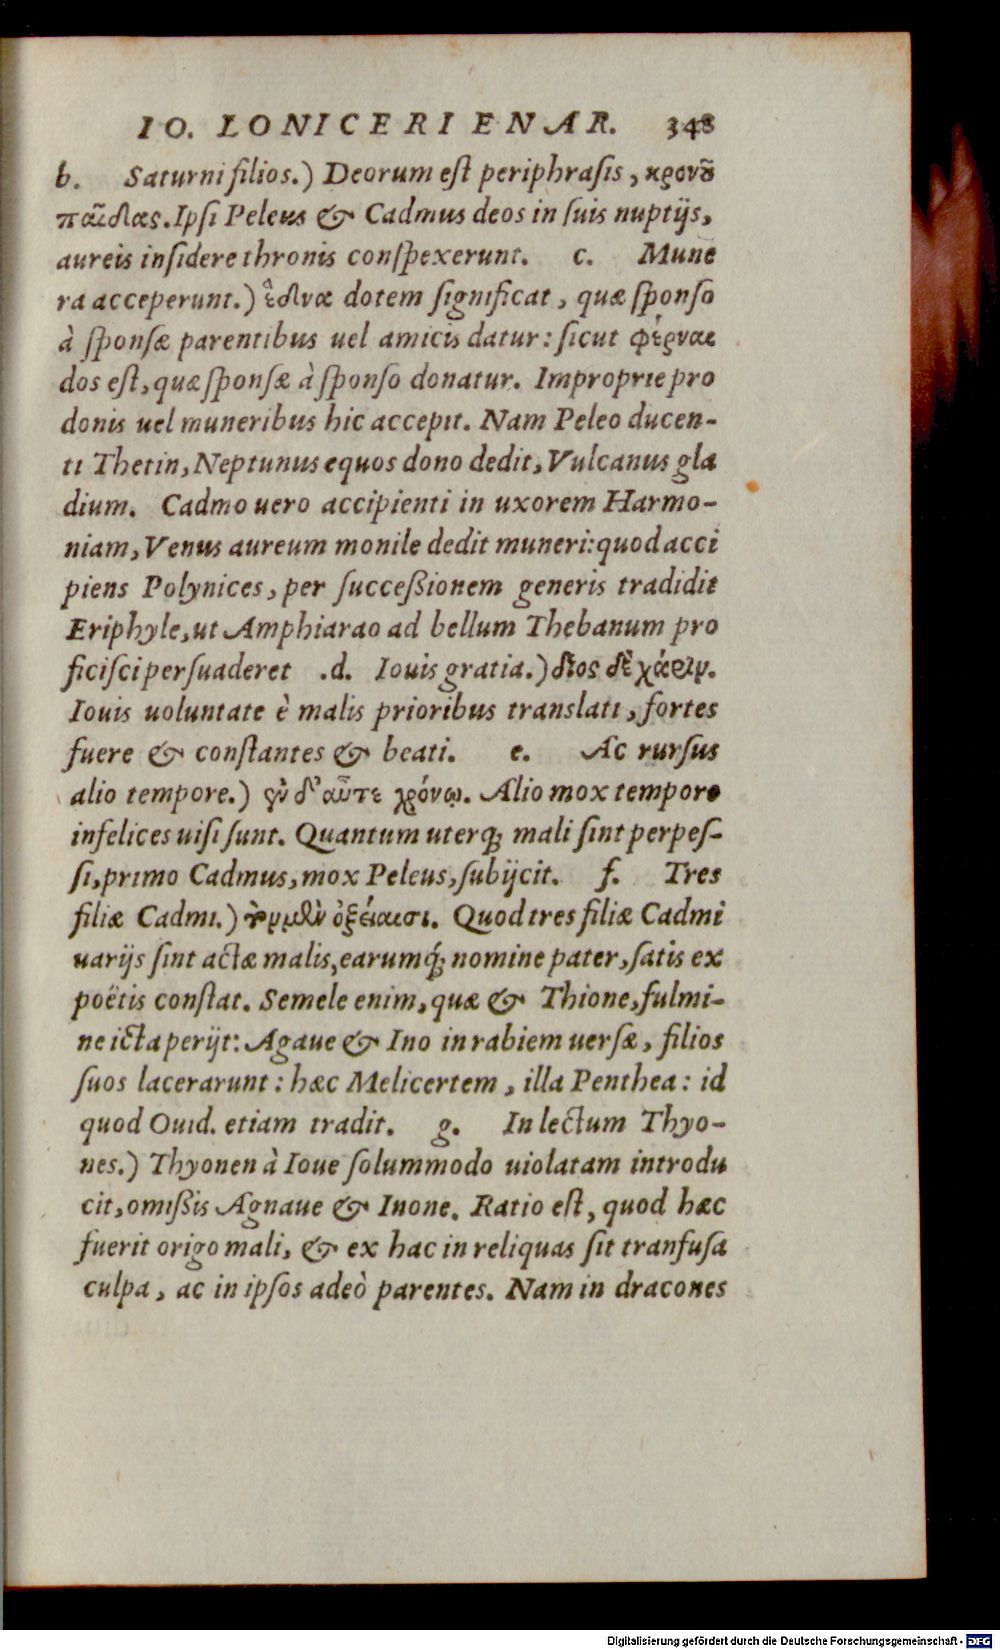 IO. LONICERI ENAR. 348
b. Saturni filios.) Deorum eſt periphraſis, κρονου̃
παῖδας. Ipſi Peleus & Cadmus deos in ſuis nuptijs,
aureis inſidere thronis conſpexerunt. c. Mune
ra acceperunt.) ἕδνα dotem ſignificat, quæ ſponſo
à ſponſæ parentibus uel amicis datur: ſicut φέρναι
dos eſt, quæ ſponſæ à ſponſo donatur. Improprie pro
donis uel muneribus hic accepit. Nam Peleo ducen-
ti Thetin, Neptunus equos dono dedit, Vulcanus gla
dium. Cadmo uero accipienti in uxorem Harmo-
niam, Venus aureum monile dedit muneri: quod acci
piens Polynices, per ſucceßionem generis tradidit
Eriphyle, ut Amphiarao ad bellum Thebanum pro
ficiſci perſuaderet .d. Iouis gratia.) διος δὲ χάριν.
Iouis uoluntate è malis prioribus translati, fortes
fuere & conſtantes & beati. e. Ac rurſus
alio tempore.) ἐν δ' αὖτε χρόνῳ. Alio mox tempore
infelices uiſi ſunt. Quantum uterq; mali ſint perpeſ-
ſi, primo Cadmus, mox Peleus, ſubijcit. f. Tres
filiæ Cadmi.) τὸν μὲν ὀξείαισι. Quod tres filiæ Cadmi
uarijs ſint actæ malis, earumq́; nomine pater, ſatis ex
poëtis conſtat. Semele enim, quæ & Thione, fulmi-
ne icta perijt: Agaue & Ino in rabiem uerſæ, filios
ſuos lacerarunt: hæc Melicertem, illa Penthea: id
quod Ouid. etiam tradit. g. In lectum Thyo-
nes.) Thyonen à Ioue ſolummodo uiolatam introdu
cit, omißis Agnaue & Inone. Ratio eſt, quod hæc
fuerit origo mali, & ex hac in reliquas ſit tranfuſa
culpa, ac in ipſos adeò parentes. Nam in dracones
Digitalisierung gefördert durch die Deutsche Forschungsgemeinschaft - DFG